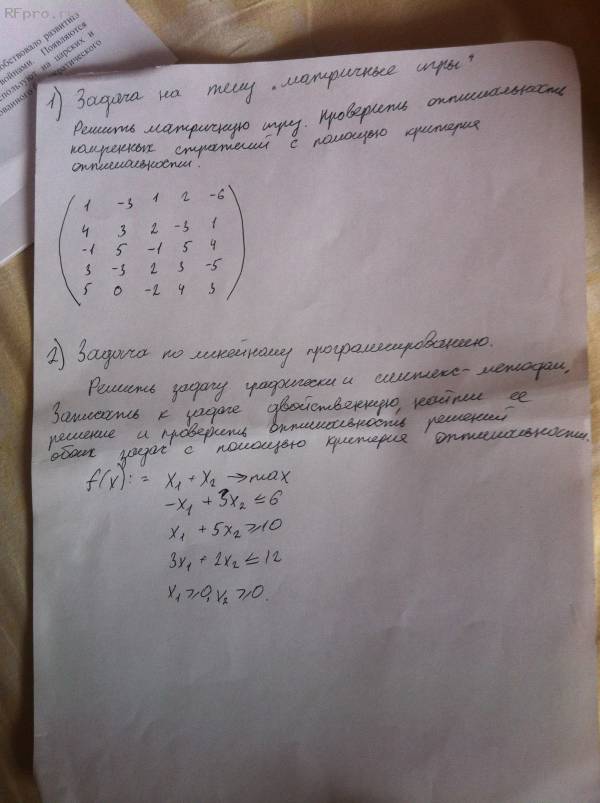 RFpro.ru
1) Задача на тему „матричные игры"
Решить матричную игру. Проверить оптимальность
стратегий с помощью критерия
оптимальности.
1 -3 1 2 -6
4 3 2 -3 1
-1 5 -1 5 4
3 -3 2 3 -5
5 0 -2 4 3
2) Задача по линейному программированию.
Решить задачу графически и симплекс-методом.
Записать к задаче двойственную, найти ее
решение и проверить оптимальность решений
обоих задач с помощью критерия оптимальности.
f(x):= x₁ + x₂ → max
-x₁ + 3x₂ ≤ 6
x₁ + 5x₂ ≥ 10
3x₁ + 2x₂ ≤ 12
x₁ ≥ 0, x₂ ≥ 0.